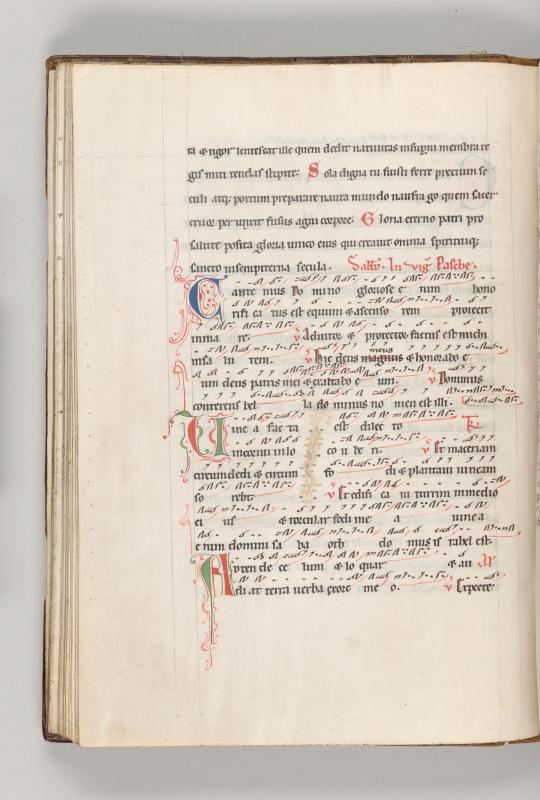 ta & rigor lentescat ille quem dedit nativitas ut superni membra re
gis miti tendas stipite. Sola digna tu fuisti ferre precium se
culi atq; portum preparare nauta mundo naufragquem sacer
cruor perunxit fusus agni corpore. Gloria eterno patri pro
salute posita gloria unico eius qui creavit omnia spirituiq;
sancto in sempiterna secula. In vig Pasche.
Cante mus Do mino gloriose e nim hono
rifi ca tus est equum & ascenso rem proiecit
in ma re. v Adiutor & protector factus est michi
in sa lu tem. v hic deus meus magnus & honorabo e
um deus patris mei & exaltabo e um. v Dominus
conterens bel la dominus no men est illi.
Vinea fac ta est dilec to
in cornu in lo co u be ri. v Et maceriam
circum dedi & circum fo di & plantavi vineam
so reth. v Et edifi ca vi turrim in medio
ei us & torcular fodi in e a vinea
e nim domini sa ba oth do mus israhel est.
Attende ce lum & lo quar & au
di at terra verba ex ore me o. v Expecte